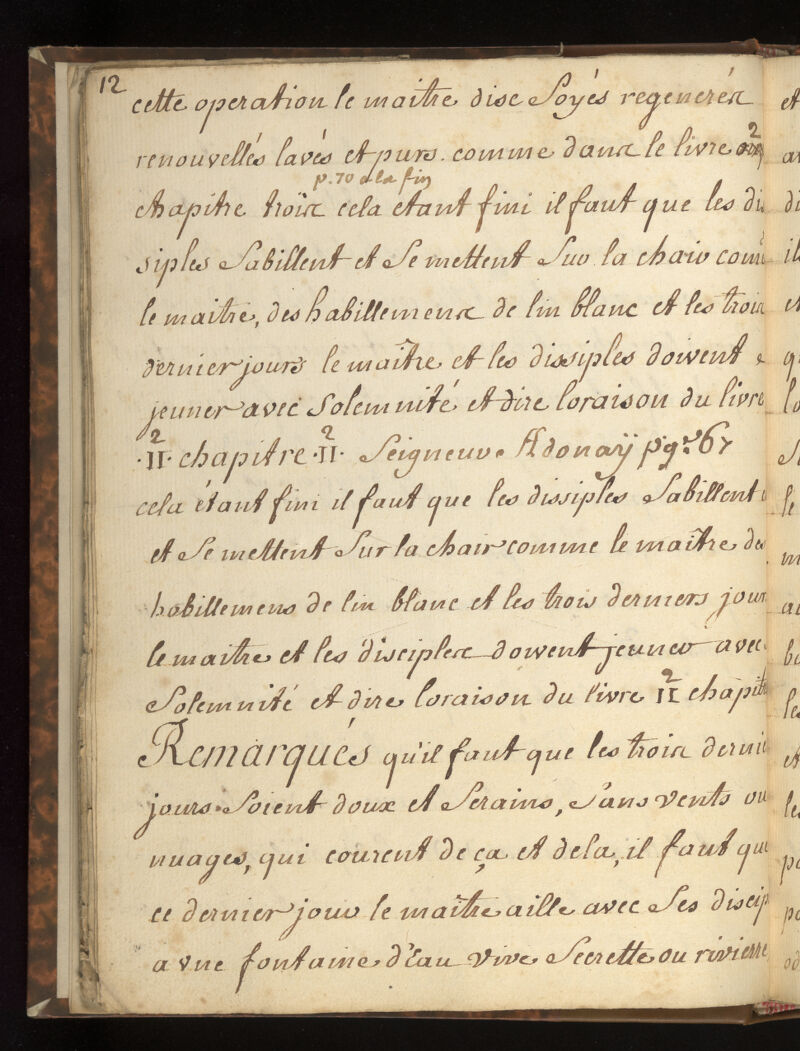 12
cette operation le maitre dise Soyés regenerés
renouvellés lavés et purs. comme dans le livre 2
p. 70 a la fin
chapitre trois cela etant fini il faut que les di
siples Sabillent et Se mettent Sur la chair com
le maitre, des habillemens de lin blanc et les trois
dernier jours le maître et les dissiples doivent
jeuner avec Solemnité et dire loraison du livre
2 2
·II· chapitre ·II· Seigneur Adonaÿ pge. 67
cela étant fini il faut que les dissiples Sabillent
et Se mettent Sur la chair comme le maître des
habillemens de lin blanc et les trois derniers jour
le maitre et les disciples doivent jeuner avec
2
Solemnité et dire loraison du livre II chapit
Remarqués qu'il faut que les trois dernie
jours Soient doux et Serains, Sans vents ou
nuages, qui courent de ça et dela, il faut que
ce dernier jour le maître aille avec Ses discip
a vne fontaine d'Eau vive Secrette ou rivierre